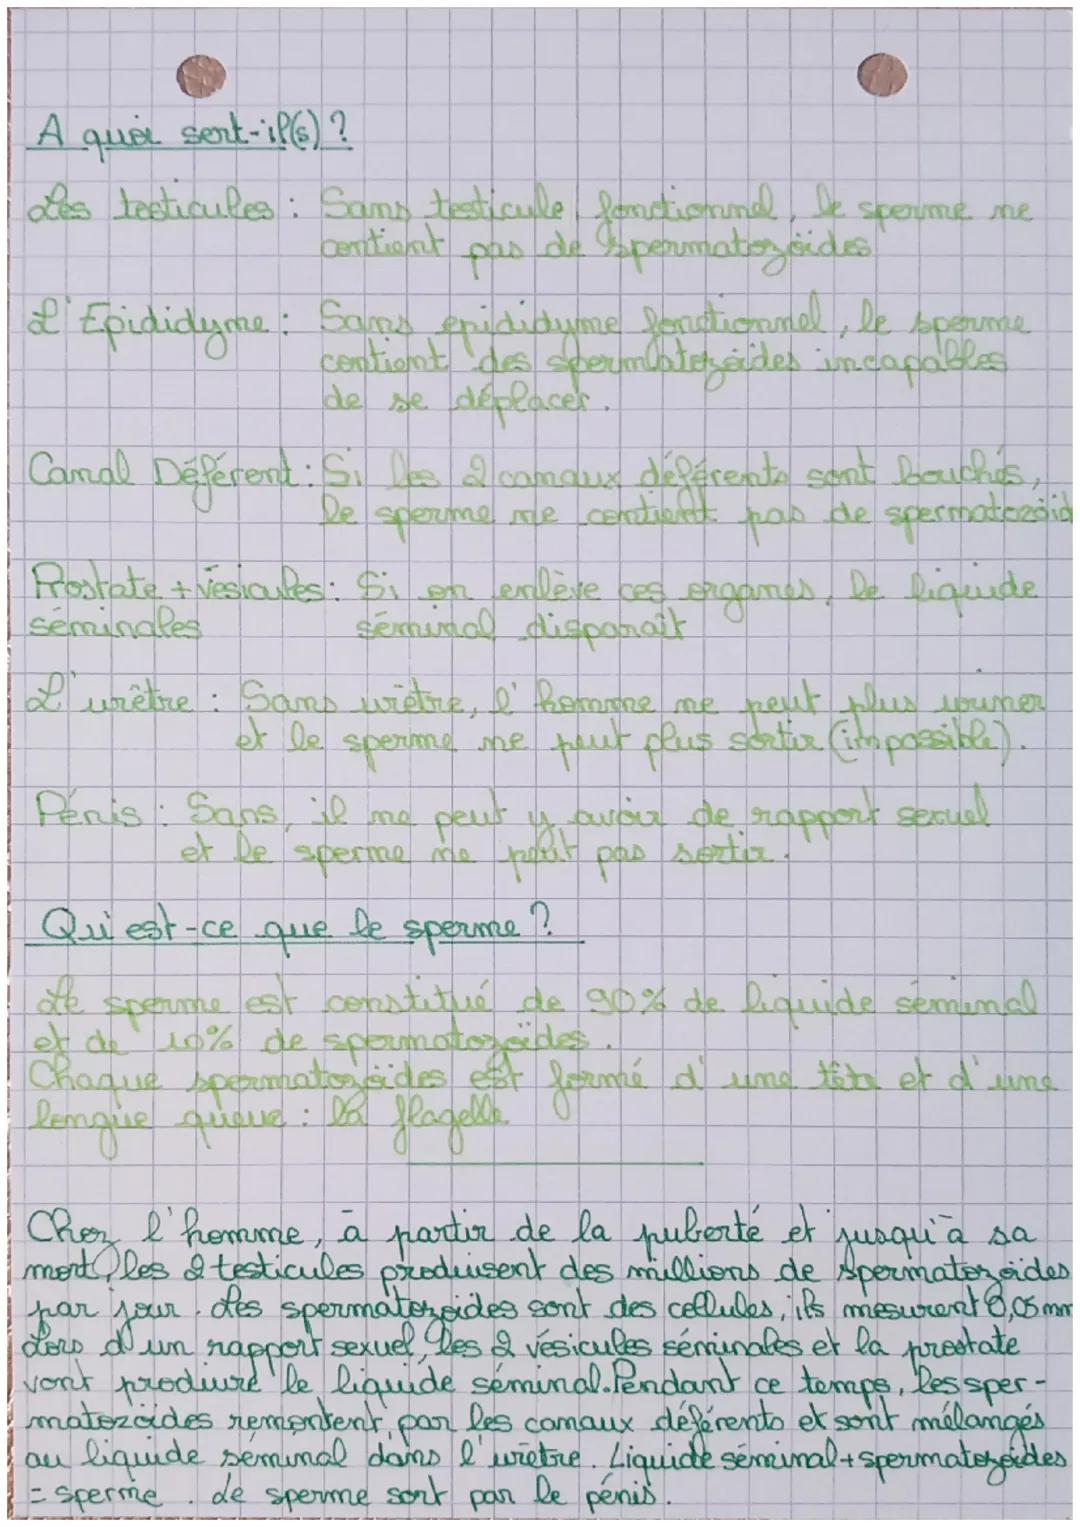 A quoi sert-il(s) ?
Les testicules : Sans testicule fonctionnel, le sperme ne
contient pas de spermatozoïdes
L'Epididyme : Sans epididyme fonctionnel, le sperme
contient des spermatozoïdes incapables
de se déplacer.
Canal Déférent : Si les 2 canaux déférents sont bouchés,
le sperme ne contient pas de spermatozoïd
Prostate + vésicules : Si on enlève ces organes, le liquide
séminales séminal disparaît
L'urètre : Sans urètre, l'homme ne peut plus uriner
et le sperme ne peut plus sortir (impossible).
Pénis : Sans, il ne peut y avoir de rapport sexuel
et le sperme ne peut pas sortir.
Qui est-ce que le sperme ?
Le sperme est constitué de 90% de liquide séminal
et de 10% de spermatozoïdes.
Chaque spermatozoïdes est formé d'une tête et d'une
longue queue : la flagelle
Chez l'homme, à partir de la puberté et jusqu'à sa
mort, les 2 testicules produisent des millions de spermatozoïdes
par jour. Les spermatozoïdes sont des cellules, ils mesurent 0,05 mm
Lors d'un rapport sexuel, les 2 vésicules séminales et la prostate
vont produire le liquide séminal. Pendant ce temps, les sper-
matozoïdes remontent par les canaux déférents et sont mélangés
au liquide séminal dans l'urètre. Liquide séminal + spermatozoïdes
= sperme. Le sperme sort par le pénis.